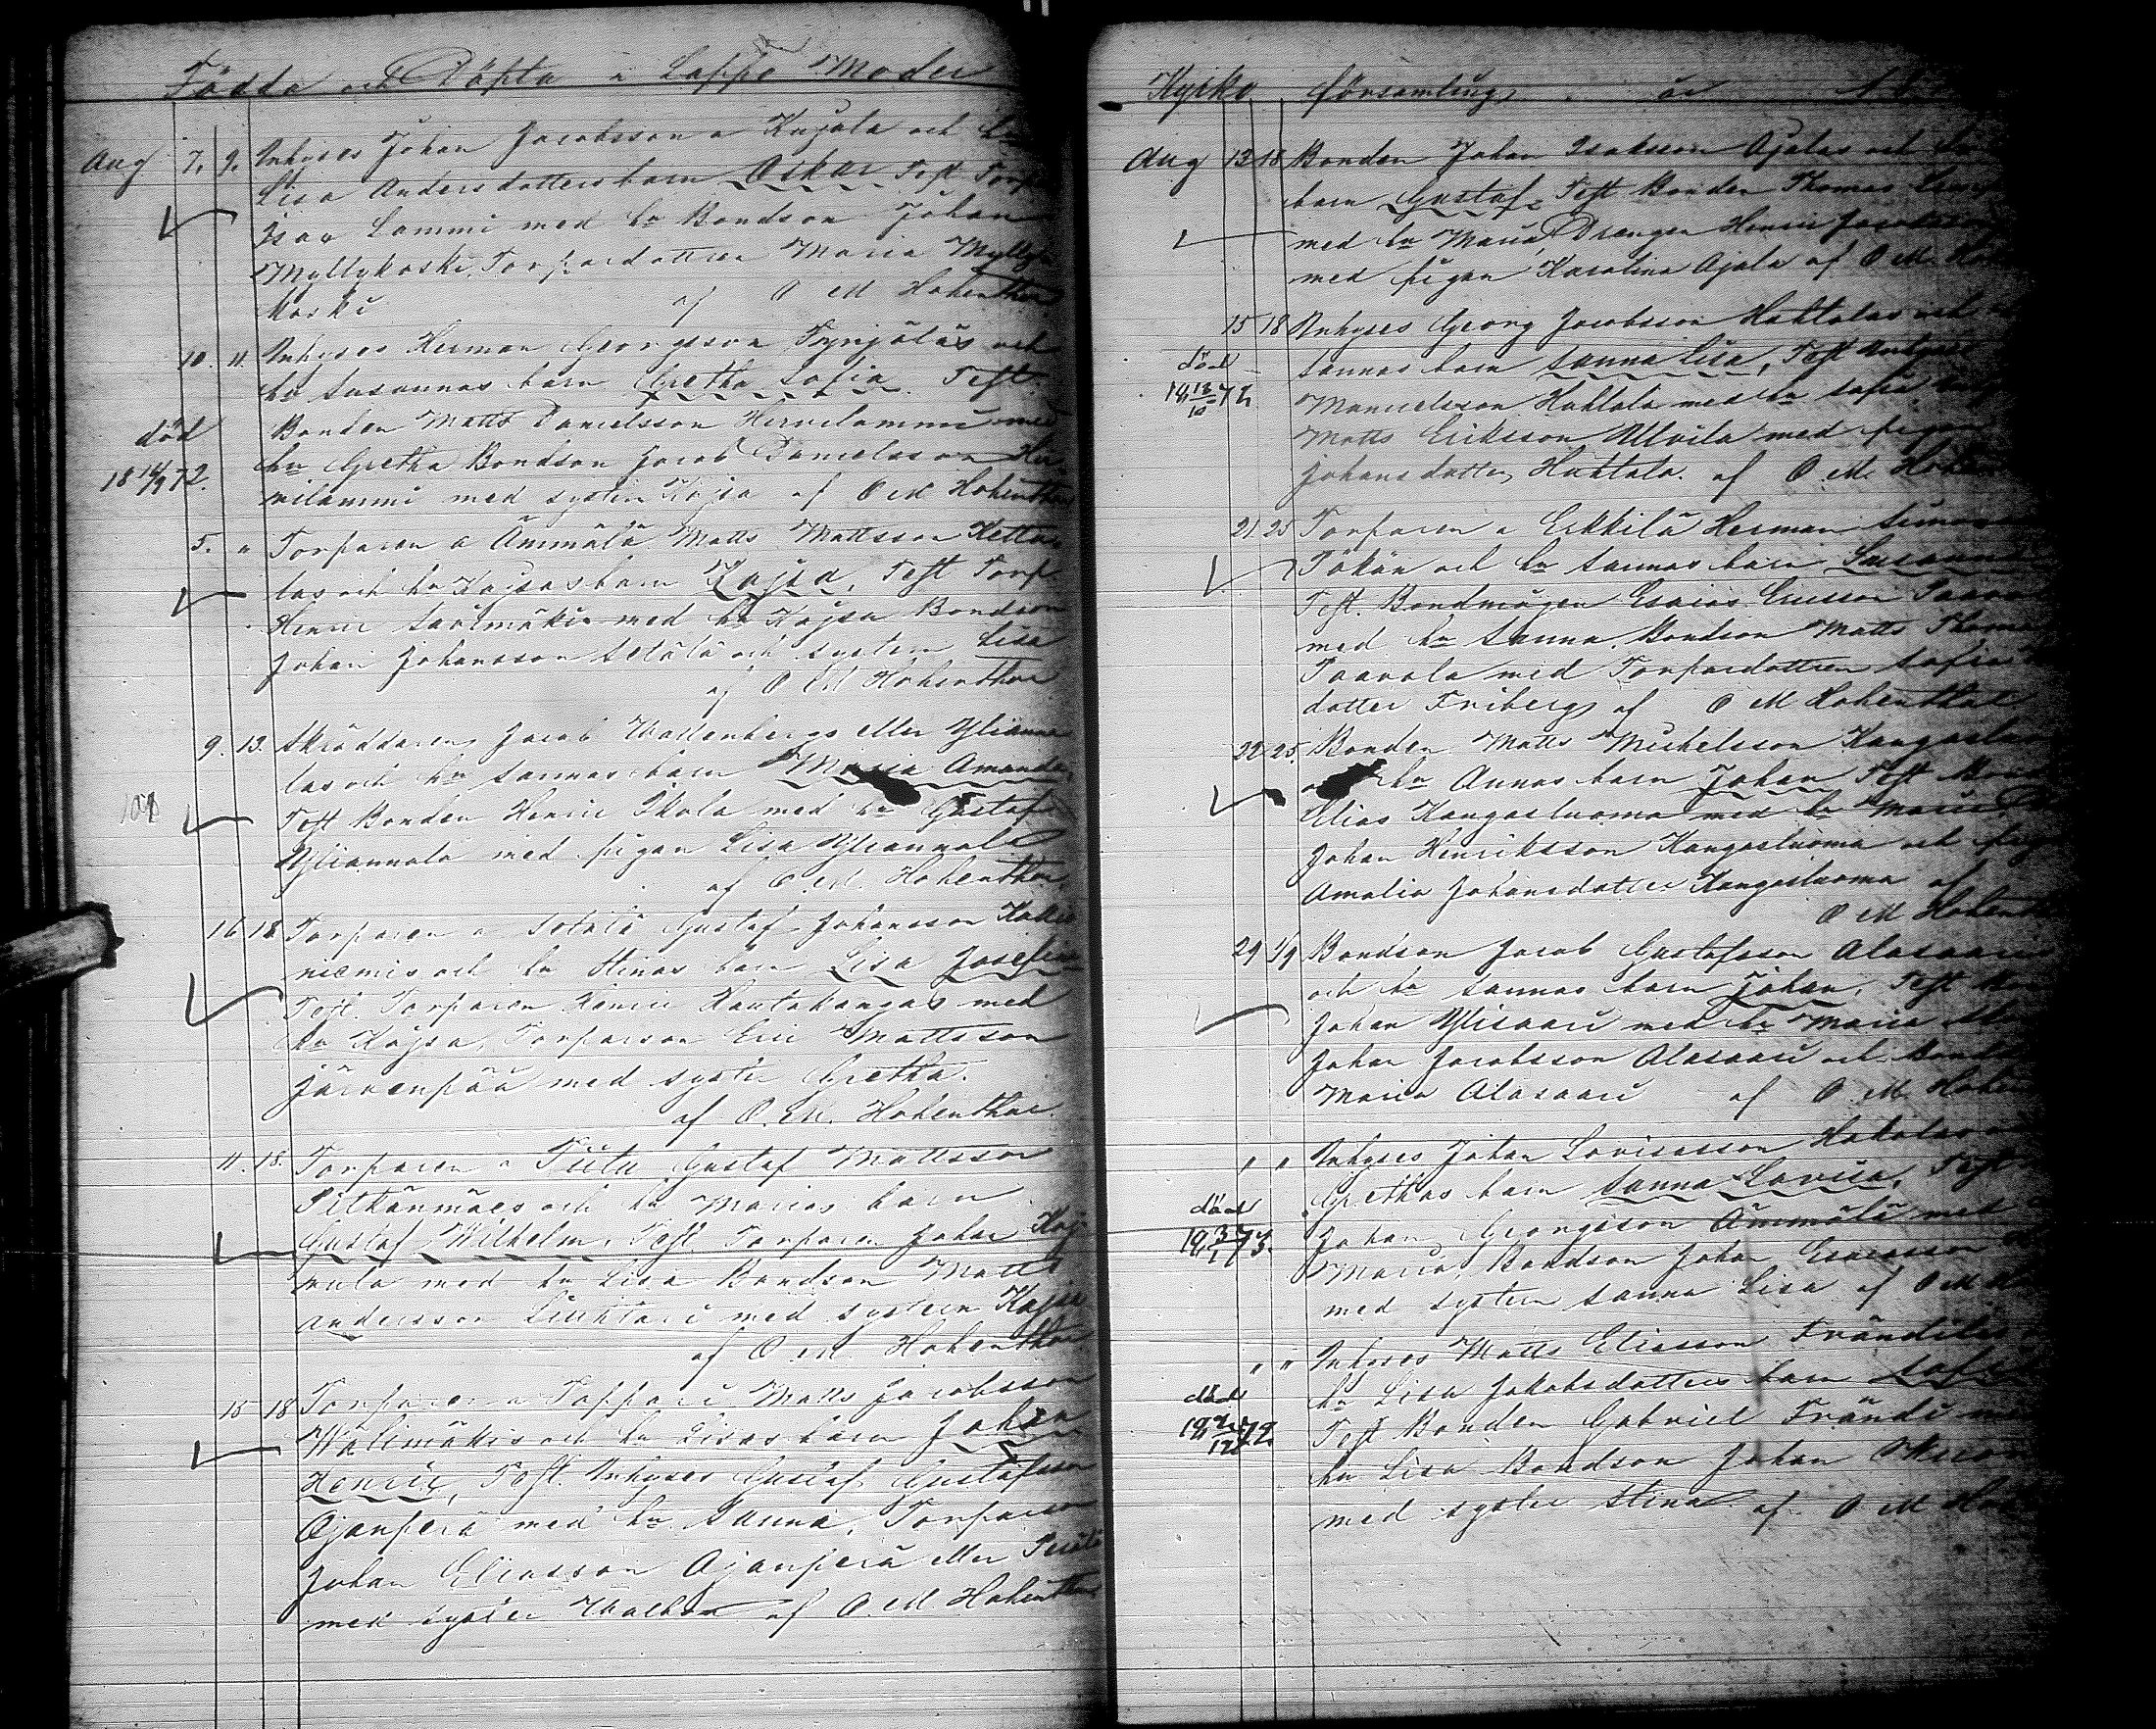 Födda och Döpta i Lappo Moder
Aug 7. 9. Inhyses Johan Jacobsson a Kujala och hu
Lisa Andersdotters barn Oskar Test Torp
Isac Lammi med hu Bondson Johan
Myllykoski, Torpardottren Maria Mylly
koski af O M Hohenthal
10. 11. Inhyses Herman Georgsson Tynjäläs och
hu Susannas barn Gretha Sofia. Test.
död Bonden Matts Danielsson Hirvilammi med
18 14/9 72. hu Gretha Bondson Jacob Danielsson Hir
vilammi med systern Kajsa af O M Hohenthal
5. " Torparen a Ämmälä Matts Mattsson Ketto
las och hu Kajsas barn Kajsa, Test Torp.
Henric Saarimäki med hu Kajsa Bondson
Johan Johansson Setälä och systern Lisa
af O M Hohenthal
9. 13. Skräddaren Jacob Wallenbergs eller Yliänna
las och hu Sannas barn Maria Amanda,
Test Bonden Henric Skola med hu Gustaf
Yliannala med pigan Lisa Yliannala
af O. M. Hohenthal
16 18 Torparen a Setälä Gustaf Johansson Kallio
niemis och hu Stinas barn Lisa Josefina
Test. Torparen Henric Hautakangas med
hu Kajsa, Torparson Eric Mattsson
Järvenpää med syster Gretha.
af O. M. Hohenthal
11. 18. Torparen a Tiitu Gustaf Mattsson
Pitkänmäes och hu Marias barn
Gustaf Wilhelm, Test. Torparen Johan Kaj
med hu Lisa Bondson Matts
Andersson Liuhtari med systern Kajsa
af O M Hohenthal
15 18 Torparen a Pappari Matts Jacobsson
Wälimäkis och hu Lisas barn Johan
Henric, Test. Inhyses Gustaf Gustafsson
Ojanperä med hu Sanna, Torparson
Johan Eliasson Ojanperä eller
med syster af O M Hohenthal
Kyrko församling år
Aug 13 18 Bonden Johan Isaksson Ojalas och hu
barn Gustaf, Test Bonden Thomas
med hu Maria, Drengen Henric Jacobsson
med pigan Karolina Ojala af O M Hoh
15 18 Inhyses Georg Jacobsson Hahtalas och
död Sannas barn Sanna Lisa, Test Inhyses
18 13/10 72 Manuelsson Hahtala med hu Sofia,
Matts Eriksson Ulvila med pigan
Johansdotter Hahtala. af O. M. Hohen
21 25 Torparen a Erkkilä Herman Simons
Pökän och hu Sannas barn Susanna
Test. Bondmågen Esaias Ericsson Paavo
med hu Sanna, Bondson Matts Thomas
Paavola med Torpardottren Sofia
dotter Friberg af O M Hohenthal
22 25. Bonden Matts Michelsson Kangaslu
hu Annas barn Johan Test Bond
Elias Kangasluoma med hu Maria,
Johan Henriksson Kangasluoma och pig
Amalia Johansdotter Kangasluoma af
O M Hohenth
29 1/9 Bondson Jacob Gustafsson Alasaari
och hu Sannas barn Johan, Test Bon
Johan Ylisaari med hu Maria
Johan Jacobsson Alasaari och Bond
Maria Alasaari af O. M. Hohen
" " Inhyses Johan Lovisasson Hakolas
Grethas barn Sanna Lovisa, Test
död Johan Georgsson Ämmälä med
18 3/1 73. Maria, Bondson Johan Esaiasson
med systern Sanna Lisa af O M H
" " Inhyses Matts Eliasson Frändilä
död hu Lisa Jakobsdotters barn Sofi
18 72 Test Bonden Gabriel Frändi
hu Lisa Bondson Johan
med syster Stina af O M Hoh